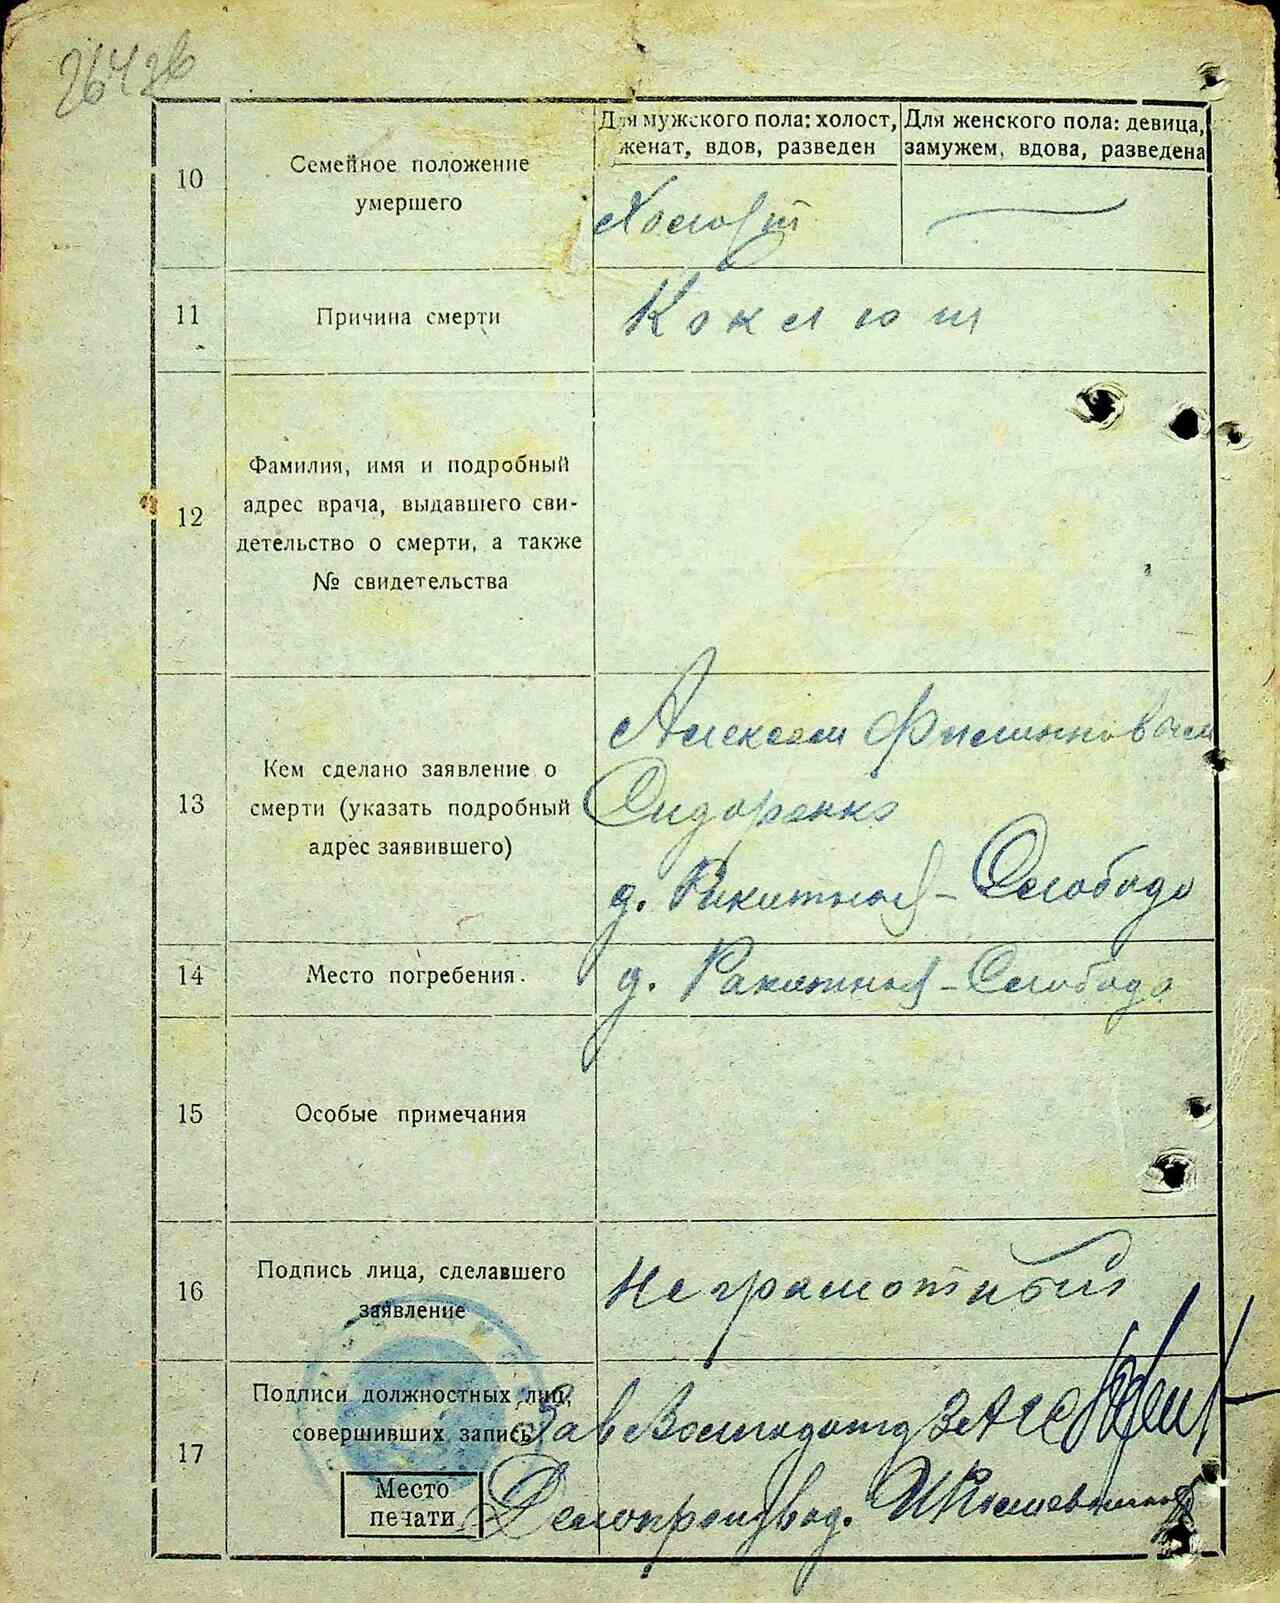 26436
Для мужского пола: холост, женат, вдов, разведен
Для женского пола: девица, замужем, вдова, разведена
10
Семейное положение
умершего
Холост
—
11
Причина смерти
Коклюш
12
Фамилия, имя и подробный
адрес врача, выдавшего сви-
детельство о смерти, а также
№ свидетельства
13
Кем сделано заявление о
смерти (указать подробный
адрес заявившего)
Алексеем Филипповичем
Сидоренко
д. Ракитная-Слобода
14
Место погребения.
д. Ракитная-Слобода
15
Особые примечания
16
Подпись лица, сделавшего
заявление
Неграмотный
17
Подписи должностных лиц,
совершивших запись
Зав
Делопроизвод.
Место
печати